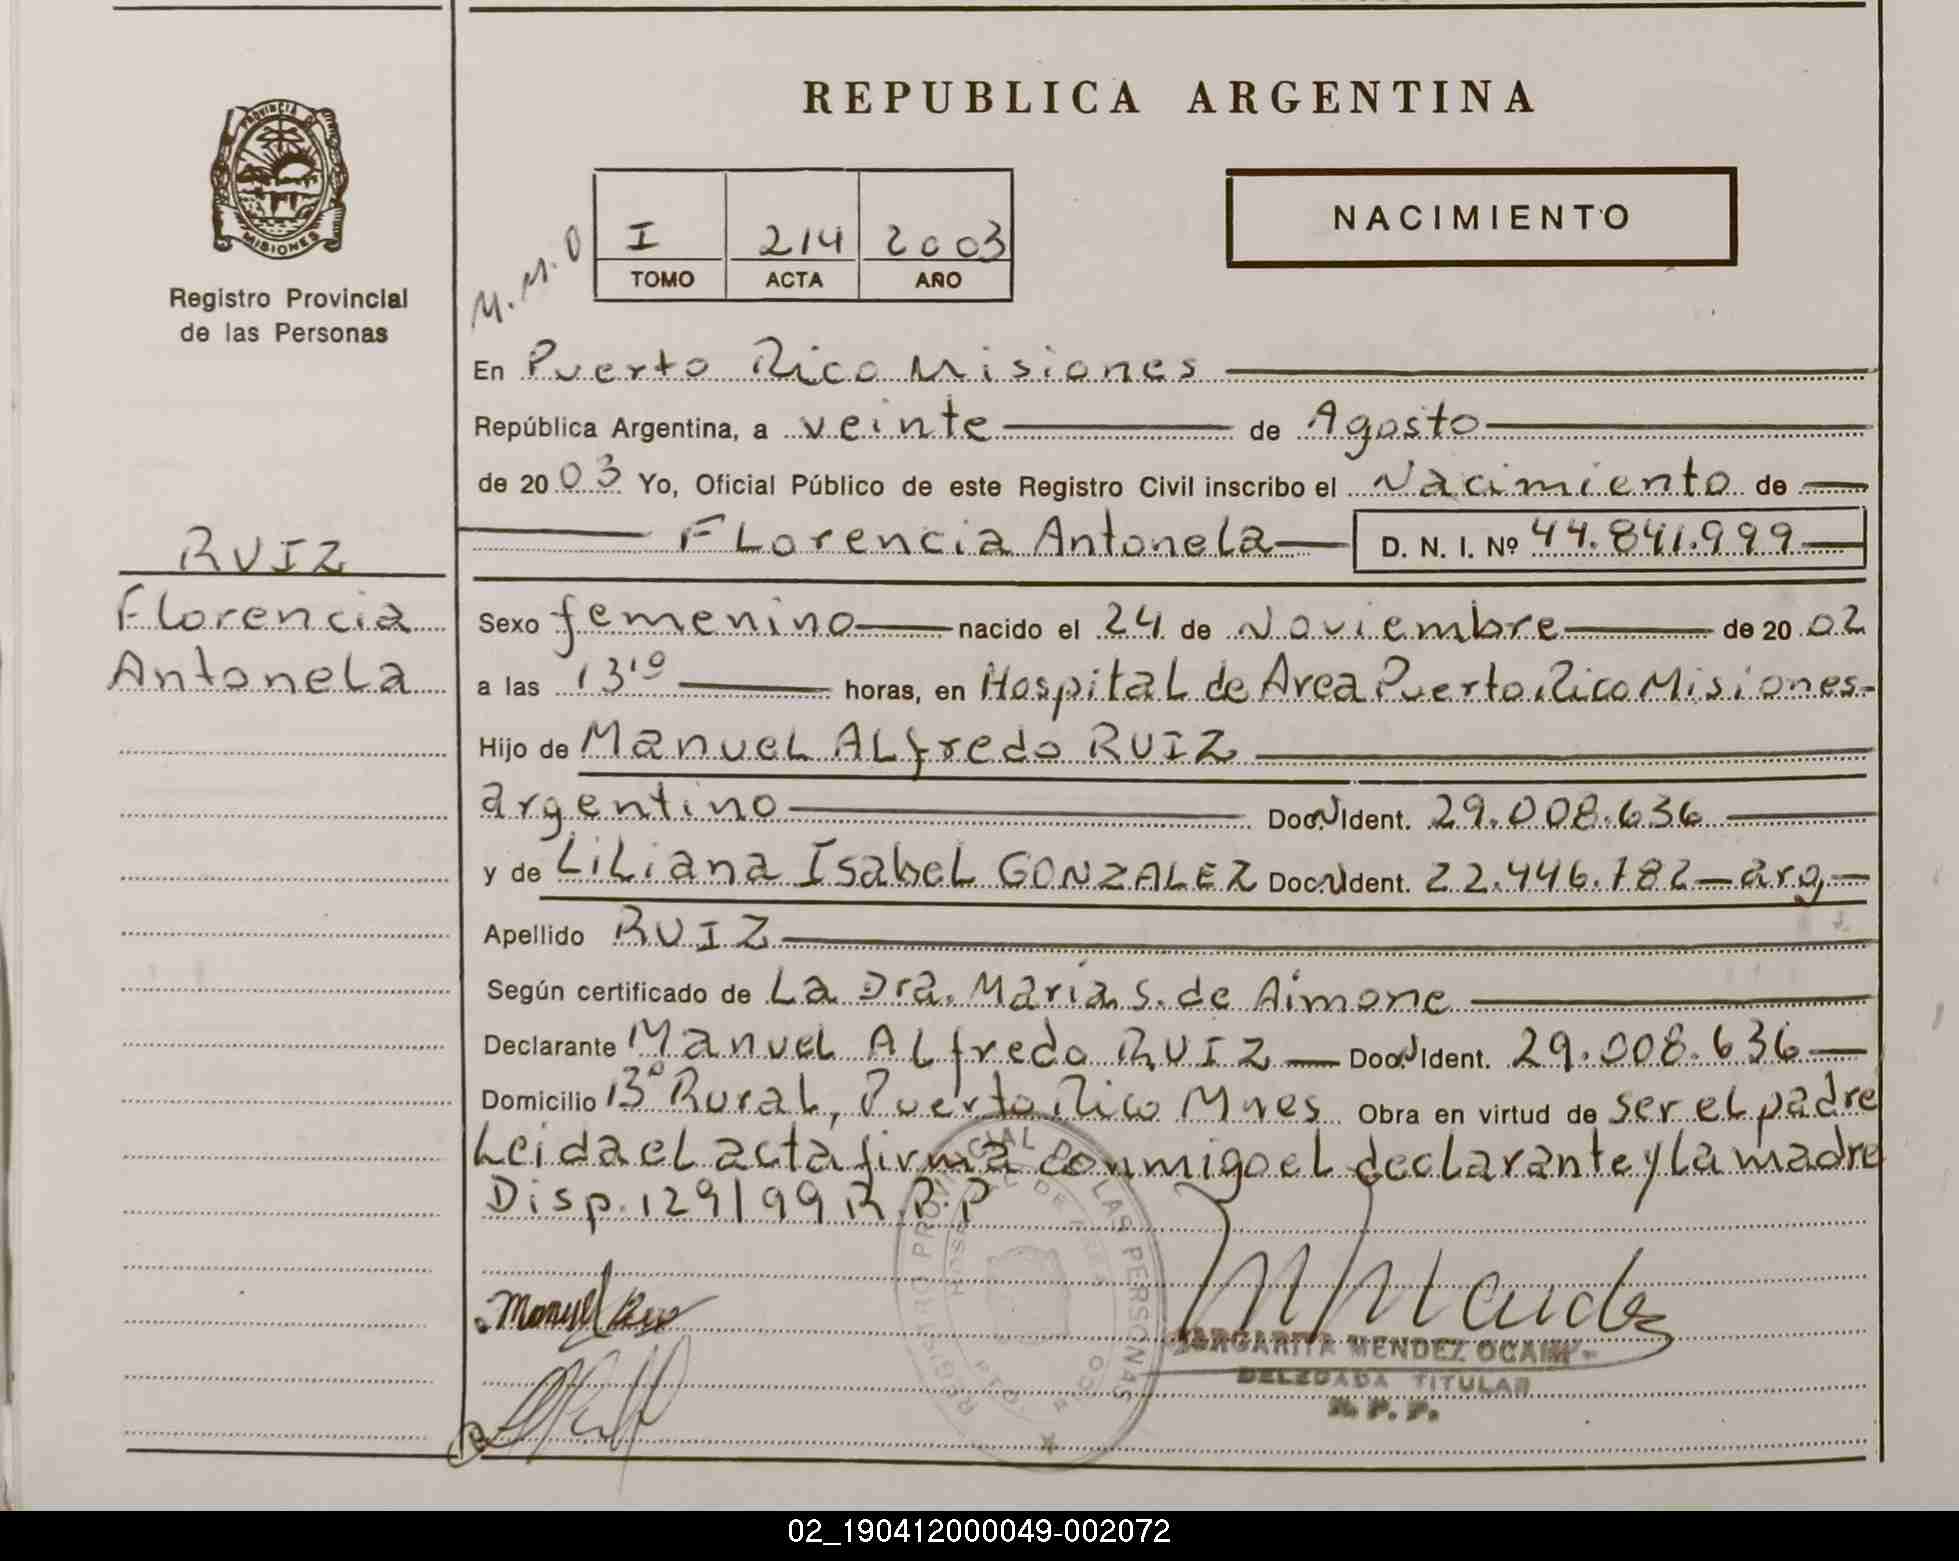 REPUBLICA ARGENTINA
PROVINCIA DE
MISIONES
Registro Provincial
de las Personas
M.M.O
I 214 2003
TOMO ACTA AÑO
NACIMIENTO
En Puerto Rico Misiones
República Argentina, a veinte de Agosto
de 2003 Yo, Oficial Público de este Registro Civil inscribo el Nacimiento de
Florencia Antonela D. N. I. Nº 44.841.999
RUIZ
Florencia
Antonela
Sexo femenino nacido el 24 de Noviembre de 2002
a las 13¹⁰ horas, en Hospital de Area Puerto Rico Misiones-
Hijo de Manuel Alfredo RUIZ
argentino Doc. Ident. 29.008.636
y de Liliana Isabel GONZALEZ Doc. Ident. 22.446.782 - arg.
Apellido RUIZ
Según certificado de La Dra. Maria S. de Aimone
Declarante Manuel Alfredo RUIZ Doc. Ident. 29.008.636
Domicilio 13° Rural, Puerto Rico Mnes Obra en virtud de ser el padre
Leida el acta firma conmigo el declarante y la madre
Disp. 129/99 R.B.P
REGISTRO PROVINCIAL DE LAS PERSONAS
Manuel Ruiz
MARGARITA MENDEZ OCAMP
DELEGADA TITULAR
R. P. P.
02_190412000049-002072